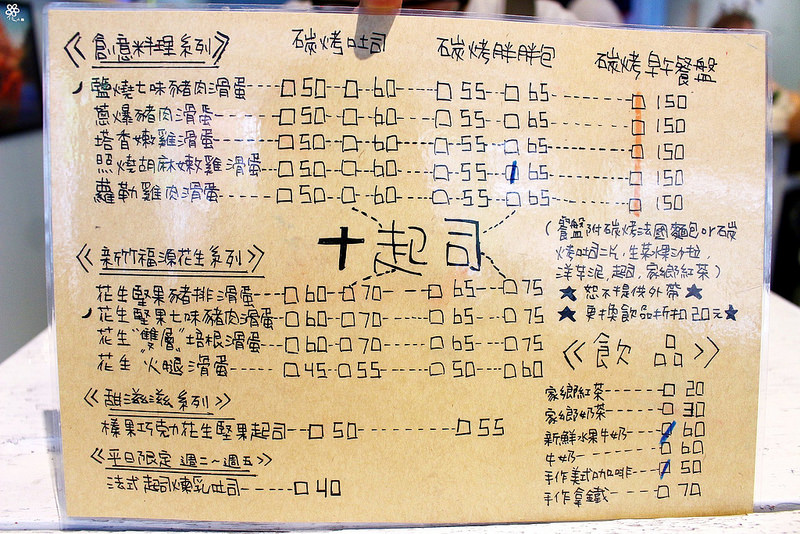 《創意料理系列》 碳烤吐司 碳烤胖胖包 碳烤早午餐盤
鹽燒七味豬肉滑蛋 50 60 55 65 150
蔥爆豬肉滑蛋 50 60 55 65 150
塔香嫩雞滑蛋 50 60 55 65 150
照燒胡麻嫩雞滑蛋 50 60 55 65 150
蘿勒雞肉滑蛋 50 60 55 65 150
+起司
(餐盤附碳烤法國麵包or碳
烤吐司二片,生菜爆沙拉,
洋芋泥,起司,家鄉紅茶)
★恕不提供外帶★
★單換飲品折扣20元★
《新竹福源花生系列》
花生堅果豬排滑蛋 60 70 65 75
花生堅果七味豬肉滑蛋 60 70 65 75
花生"雙層"培根滑蛋 60 70 65 75
花生"火腿滑蛋 45 55 50 60
《甜滋滋系列》
榛果巧克力花生堅果起司 50 55
《平日限定 週二~週五》
法式起司煉乳吐司 40
《飲品》
家鄉紅茶 20
家鄉奶茶 30
新鮮水果牛奶 60
牛奶 60
手作美式咖啡 50
手作拿鐵 70